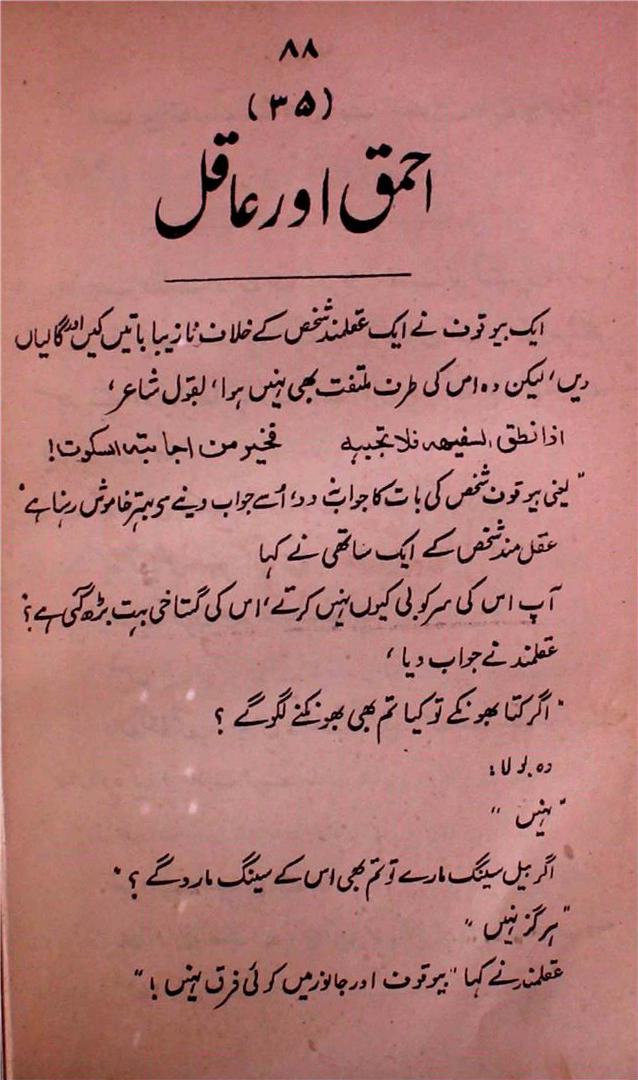 ۸۸
(۳۵)
احمق اور عاقل
ایک بیوقوف نے ایک عقلمند شخص کے خلاف نازیبا باتیں کیں اور گالیاں
دیں، لیکن وہ اس کی طرف ملتفت بھی نہیں ہوا، بقول شاعر،
اذا نطق السفیہ فلا تجیبہ فخیر من اجابتہ السکوت!
"یعنی بیوقوف شخص کی بات کا جواب نہ دو، اُسے جواب دینے سے بہتر خاموش رہنا ہے"
عقل مند شخص کے ایک ساتھی نے کہا
آپ اس کی سرکوبی کیوں نہیں کرتے، اس کی گستاخی بہت بڑھ گئی ہے؟
عقلمند نے جواب دیا،
"اگر کتا بھونکے تو کیا تم بھی بھونکنے لگوگے ؟
وہ بولا:
"نہیں"
اگر بیل سینگ مارے تو تم بھی اس کے سینگ ماروگے ؟"
"ہرگز نہیں"
عقلمند نے کہا "بیوقوف اور جانور میں کوئی فرق نہیں!"